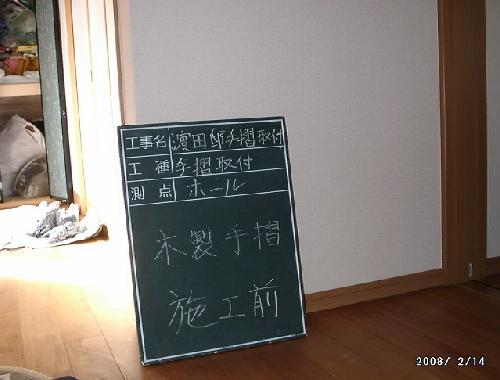 工事名 濱田邸手摺取付
工種 手摺取付
測点 ホール
木製手摺
施工前
2008/ 2/14